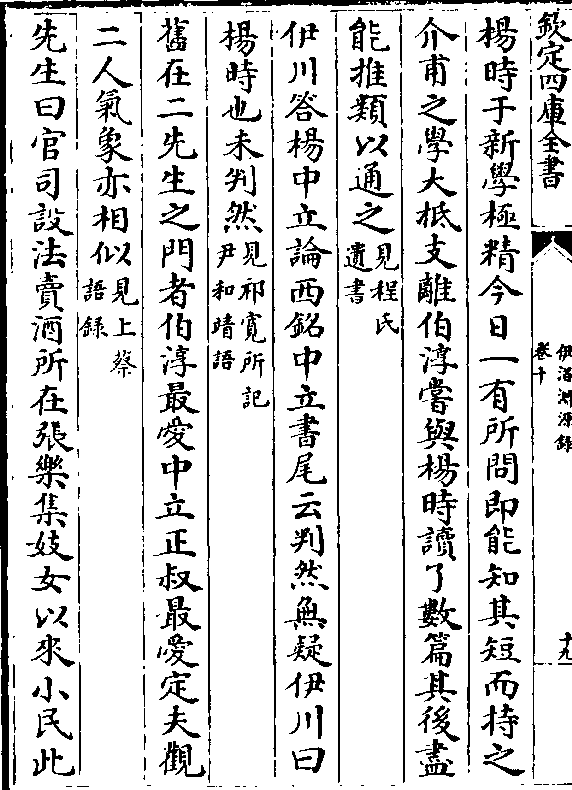 欽定四庫全書
伊洛淵源録
卷十
十九
楊時于新學極精今日一有所問即能知其短而持之
介甫之學大抵支離伯淳嘗與楊時讀了數篇其後盡
能推類以通之見程氏遺書
伊川答楊中立論西銘中立書尾云判然無疑伊川曰
楊時也未判然見祁寛所記尹和靖語
舊在二先生之門者伯淳最愛中立正叔最愛定夫觀
二人氣象亦相似見上蔡語録
先生曰官司設法賣酒所在張樂集妓女以來小民此